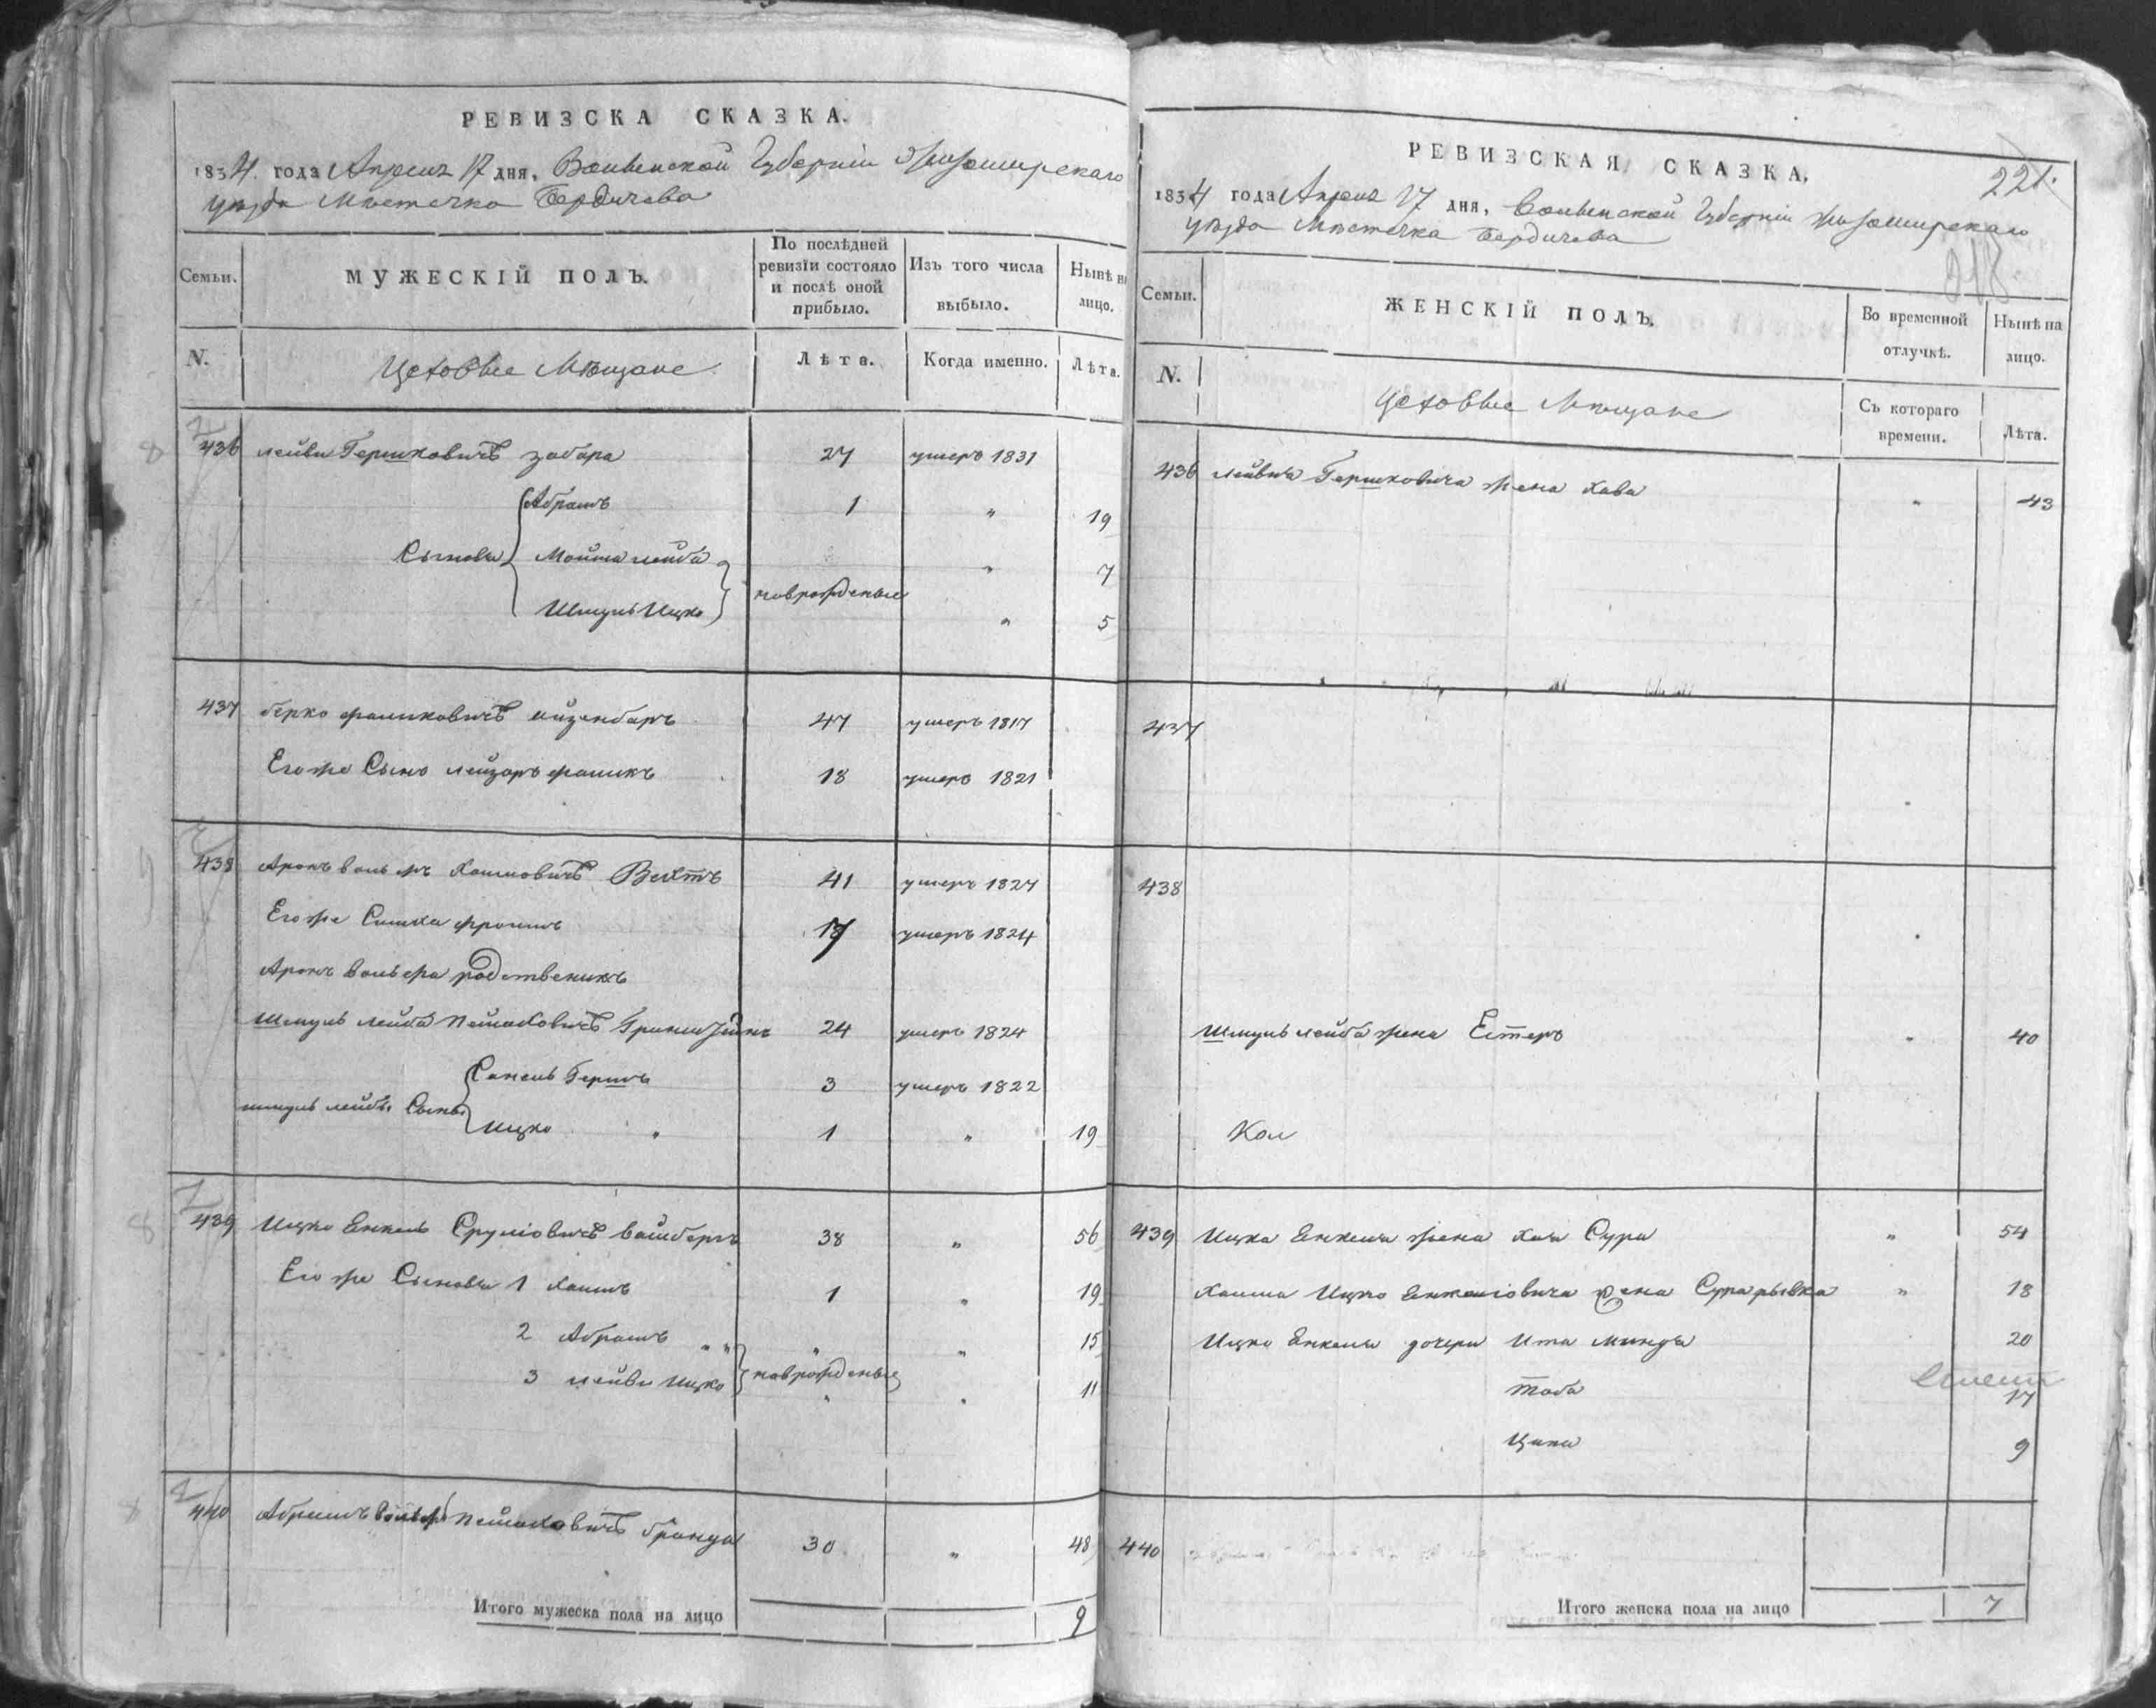 РЕВИЗСКА СКАЗКА.
1834 года Апреля 17 дня, Волынской Губерніи Житомирскаго
уѣзда Мѣстечка Бердичева
Семьи.
МУЖЕСКІЙ ПОЛЪ.
По послѣдней ревизіи состояло и послѣ оной прибыло.
Изъ того числа выбыло.
Нынѣ на лицо.
N.
Цеховые Мѣщане
Лѣта.
Когда именно.
Лѣта.
436 Лейви Гершковичъ забара 27 умеръ 1831
Абрамъ 1 " 19
Сыновья Мошка лейба " 7
новрожденые
Шмуль Ицко " 5
437 берко фаликовичъ айзенбаръ 47 умеръ 1817
Его же Сынъ лейзоръ фаликъ 18 умеръ 1821
438 Аронъ вольфъ Хаимовичъ Вехтъ 41 умеръ 1827
Его же Симха фроимъ 17 умеръ 1824
Аронъ вольфа родственикъ
Шмуль лейба Пейсаховичъ 24 умеръ 1824
Гершъ 3 умеръ 1822
шмуль лейбы Сыны
Ицко " 1 " 19
439 Ицко Енкель Сруліовичъ вайсбергъ 38 " 56
Его же Сыновья 1 Хаимъ 1 " 19
2 Абрамъ " " " " 15
3 лейви Ицко новрожденые " " 11
440 Абрамъ вольфъ Пейсаховичъ 30 " 48
Итого мужеска пола на лицо 9
РЕВИЗСКАЯ СКАЗКА.
221.
1834 года Апреля 17 дня, Волынской Губерніи Житомирскаго
уѣзда Мѣстечка Бердичева
Семьи.
ЖЕНСКІЙ ПОЛЪ.
Во временной отлучкѣ.
Нынѣ на лицо.
N.
Цеховые Мѣщане
Съ котораго времени.
Лѣта.
436 Лейвиа Гершковича жена Хава " 43
437
438
Шмуль лейба жена Естеръ " 40
439 Ицка Енкеля жена Хая Сура " 54
Хаима Ицко Енкеліовича жена Сура рывка " 18
Ицко Енкеля дочери Ита минда 20
Тоба 17
Ципа 9
440
Итого женска пола на лицо 7